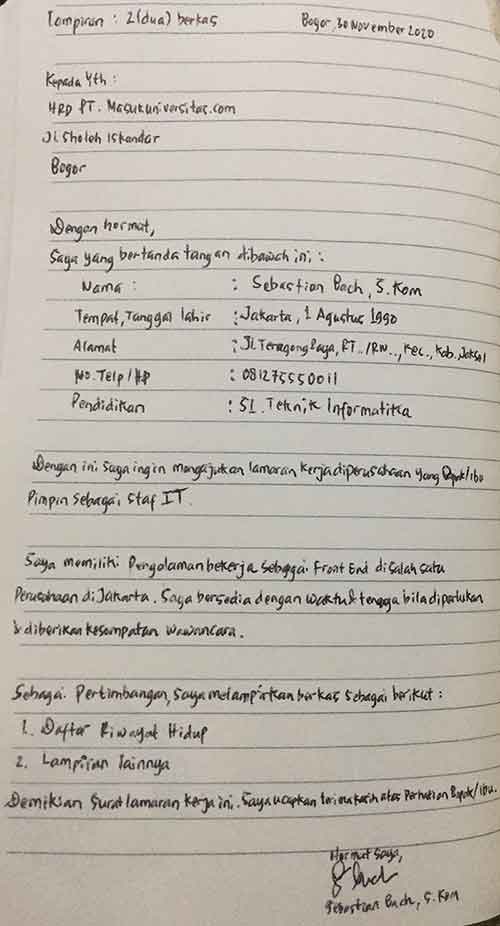 Lampiran : 2 (dua) berkas Bogor, 30 November 2020
Kepada Yth :
HRD PT. Masukuniversitas.com
Jl Sholeh Iskandar
Bogor
Dengan hormat,
Saya yang bertanda tangan dibawah ini :
Nama : : Sebastian Bach, S.Kom
Tempat, Tanggal lahir : Jakarta, 1 Agustus 1990
Alamat : Jl. Terogong Raya, RT../RW.., Kec., Kab. Jaksel
No. Telp/HP : 081275550011
Pendidikan : S1. Teknik Informatika
Dengan ini saya ingin mengajukan lamaran kerja diperusahaan yang Bapak/ibu
Pimpin sebagai staf IT.
Saya memiliki Pengalaman bekerja sebagai Front End disalah satu
Perusahaan di Jakarta. Saya bersedia dengan waktu & tenaga bila diperlukan
& diberikan kesempatan wawancara.
Sebagai Pertimbangan, saya melampirkan berkas sebagai berikut :
1. Daftar Riwayat Hidup
2. Lampiran lainnya
Demikian surat lamaran kerja ini. Saya ucapkan terima kasih atas Perhatian Bapak/ibu.
Hormat Saya,
Sebastian Bach, S.Kom